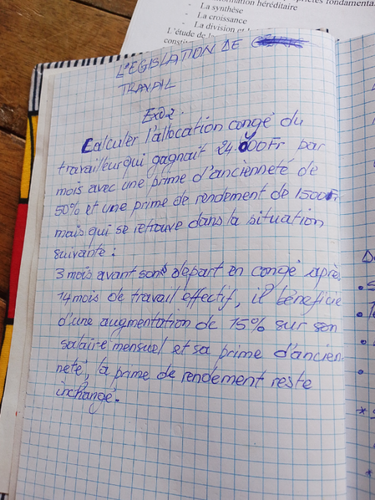 formation héréditaire
- La synthèse
- La croissance
- La division et
L'étude de la
L'EGISLATION DE
TRAVAIL
Exo2.
Calculer l'allocation congé du
travailleur qui gagnait 24000Fr par
mois avec une prime d'ancienneté de
50% et une prime de rendement de 1500Fr
mais qui se retrouve dans la situation
suivante :
3 mois avant sons depart en congé après
14 mois de travail effectif, il bénéficie
d'une augmentation de 15% sur son
salaire mensuel et sa prime d'ancien-
neté, la prime de rendement reste
inchangé.